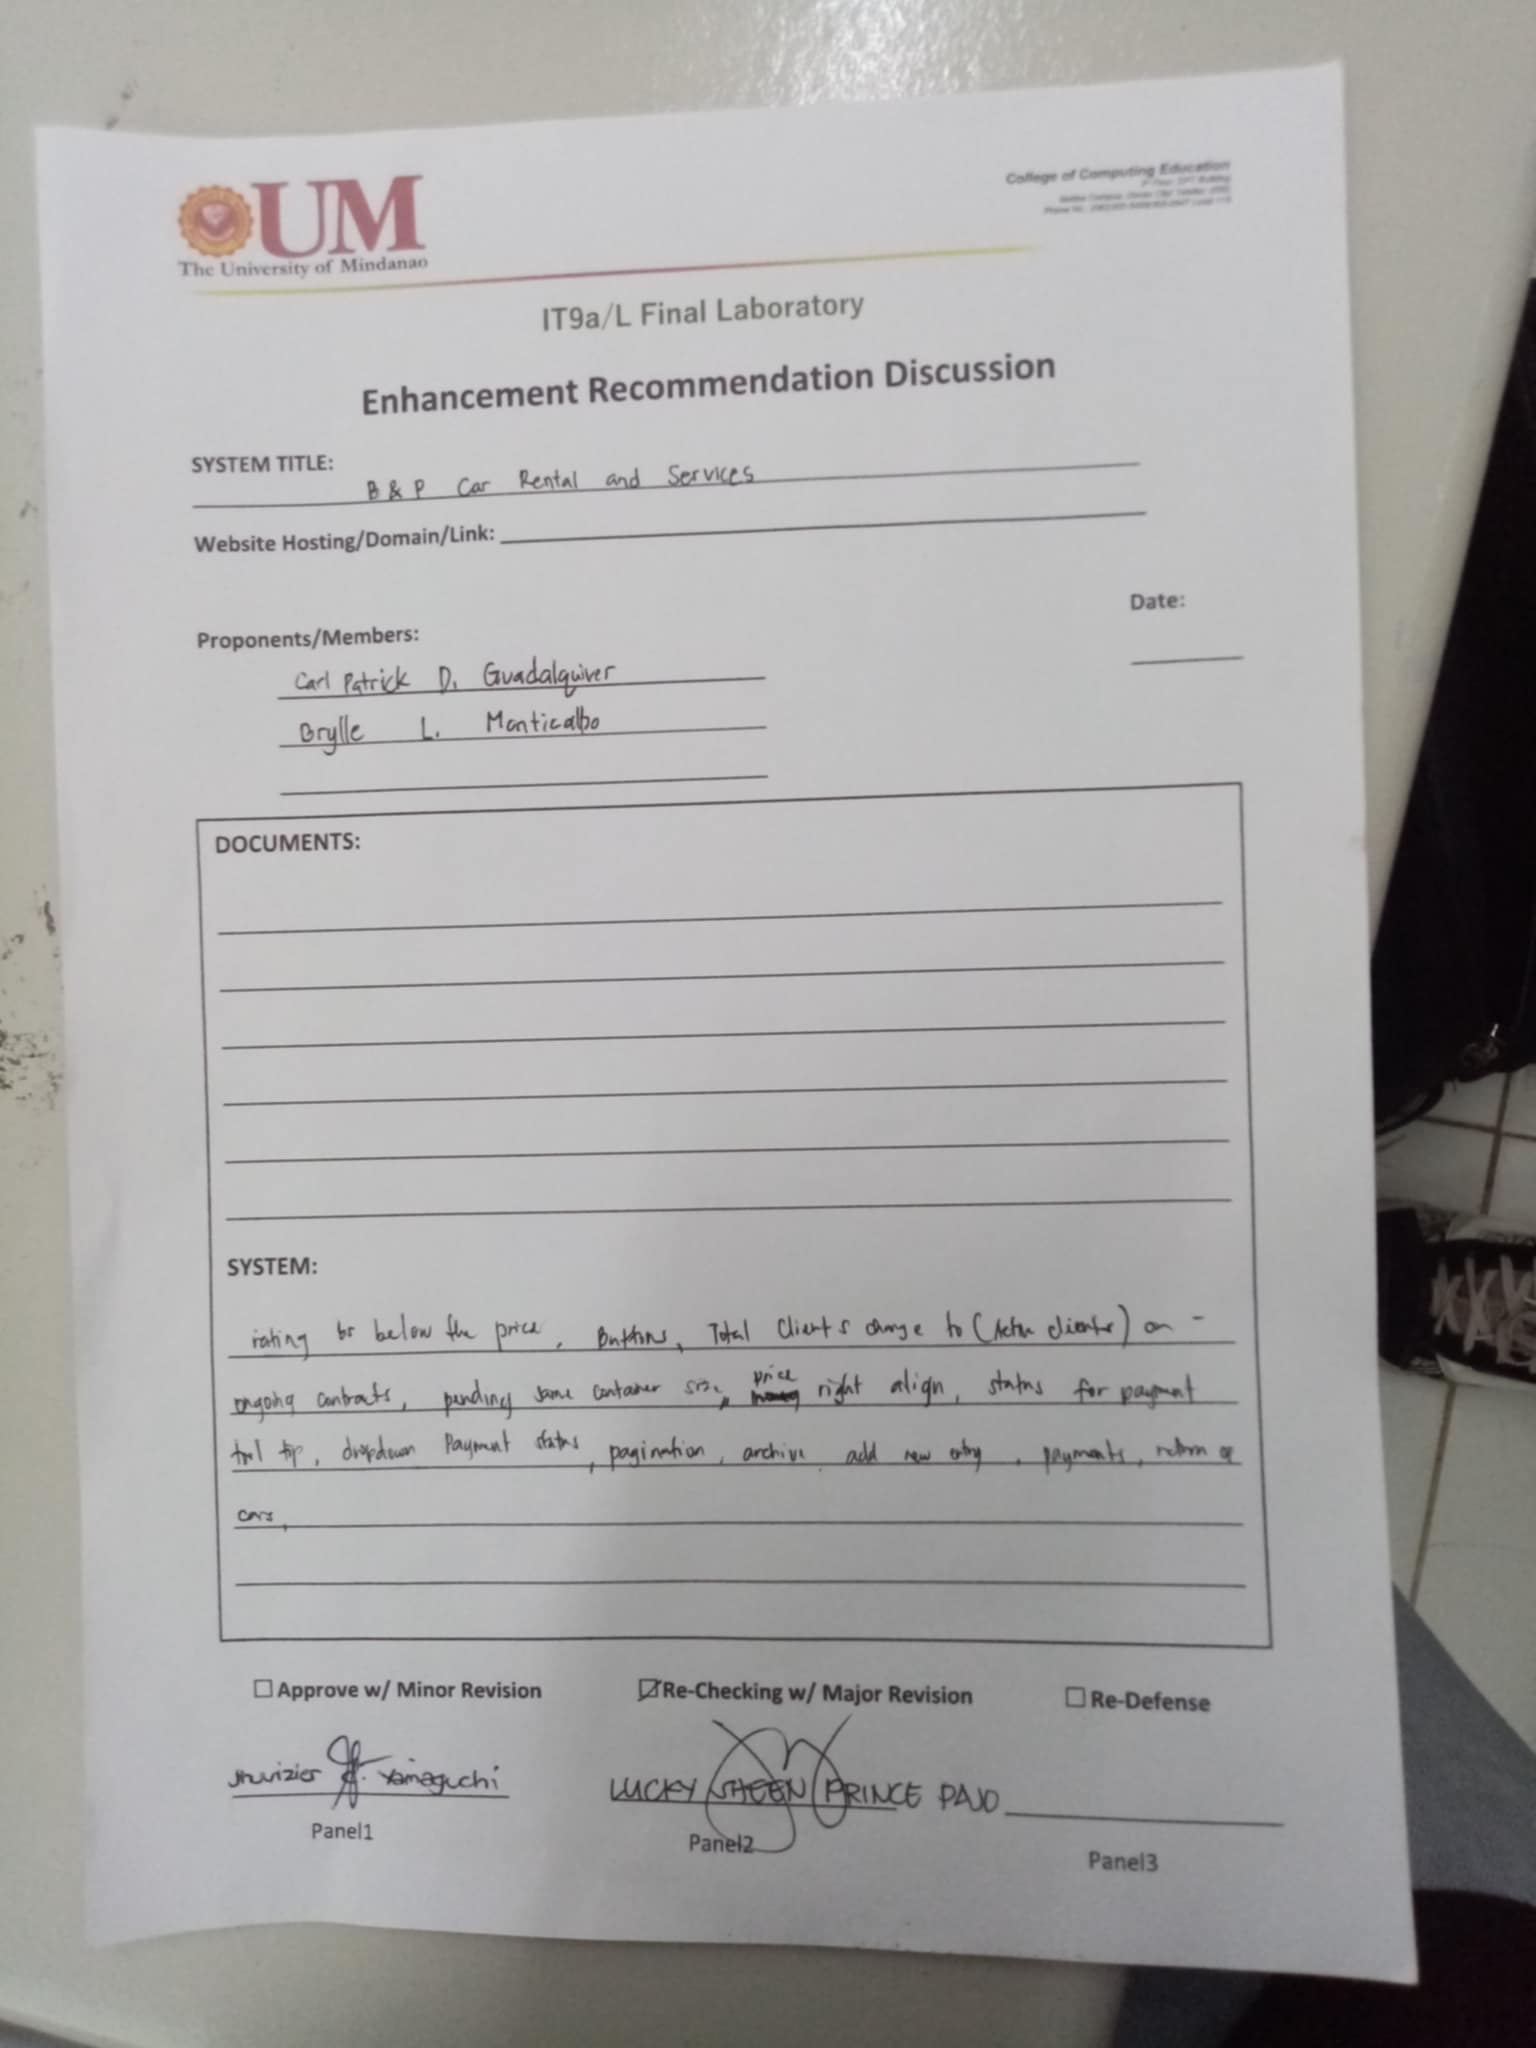 UM
The University of Mindanao
College of Computing Education
IT9a/L Final Laboratory
Enhancement Recommendation Discussion
SYSTEM TITLE:
B & P Car Rental and Services
Website Hosting/Domain/Link:
Date:
Proponents/Members:
Carl Patrick D. Guadalquiver
Brylle L. Monticalbo
DOCUMENTS:
SYSTEM:
rating below the price, Buttons, Total Clients change to (Active clients) on -
ongoing contracts, pending same container size, price right align, status for payment
tool tip, dropdown Payment status, pagination, archive add new entry, payments, return of
cars,
Approve w/ Minor Revision Re-Checking w/ Major Revision Re-Defense
Yamaguchi LUCKY SHEEN PRINCE PAJO
Panel1 Panel2 Panel3